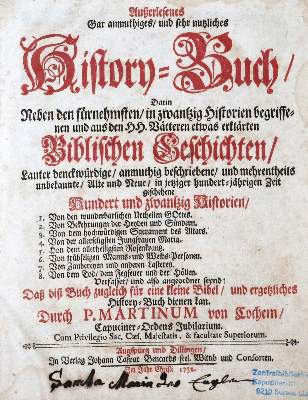 Außerlesenes
Gar anmuthiges/ und sehr nutzliches
History-Buch/
Darin
Neben den fürnehmsten/ in zwantzig Historien begriffe-
nen und aus den HH. Vätteren etwas erklärten
Biblischen Geschichten/
Lauter denckwürdige/ anmuthig beschriebene/ und mehrentheils
unbekante/ Alte und Neue/ in jetziger hundert-jährigen Zeit
geschehene
Hundert und zwantzig Historien/
1. Von den wunderbarlichen Urtheilen GOttes.
2. Von Bekehrungen der Heyden und Sündern.
3. Von dem hochwürdigen Sacrament des Altars.
4. Von der allerseligsten Jungfrauen Maria.
5. Von dem allerheiligsten Rosenkrantz.
6. Von trübseligen Manns- und Weibs-Personen.
7. Von Zaubereyen und anderen Lasteren.
8. Von dem Tod/ dem Fegfeuer und der Höllen.
Verfasset/ und also angeordnet seynd/
Daß diß Buch zugleich für eine kleine Bibel/ und ergetzliches
History-Buch dienen kan.
Durch P. MARTINUM von Cochem/
Capuciner-Ordens Jubilarium.
Cum Privilegio Sac. Cæs. Majestatis, & facultate Superiorum.
Augspurg und Dillingen/
In Verlag Johann Caspar Bencards seel. Wittib und Consorten.
Im Jahr Christi 1732.
Zentralbibliothek
Kapuziner